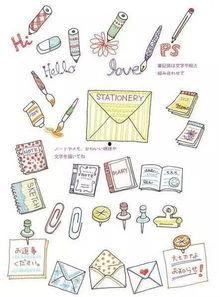 Hi
PS
Hello
love
筆記具は文字や絵と
組み合わせて
STATIONERY
ノートやメモ、かわいい雑貨や
文字を描いてね
NOTE
DIARY
SKETCH
お返事
ください。
大切な
お知らせ!